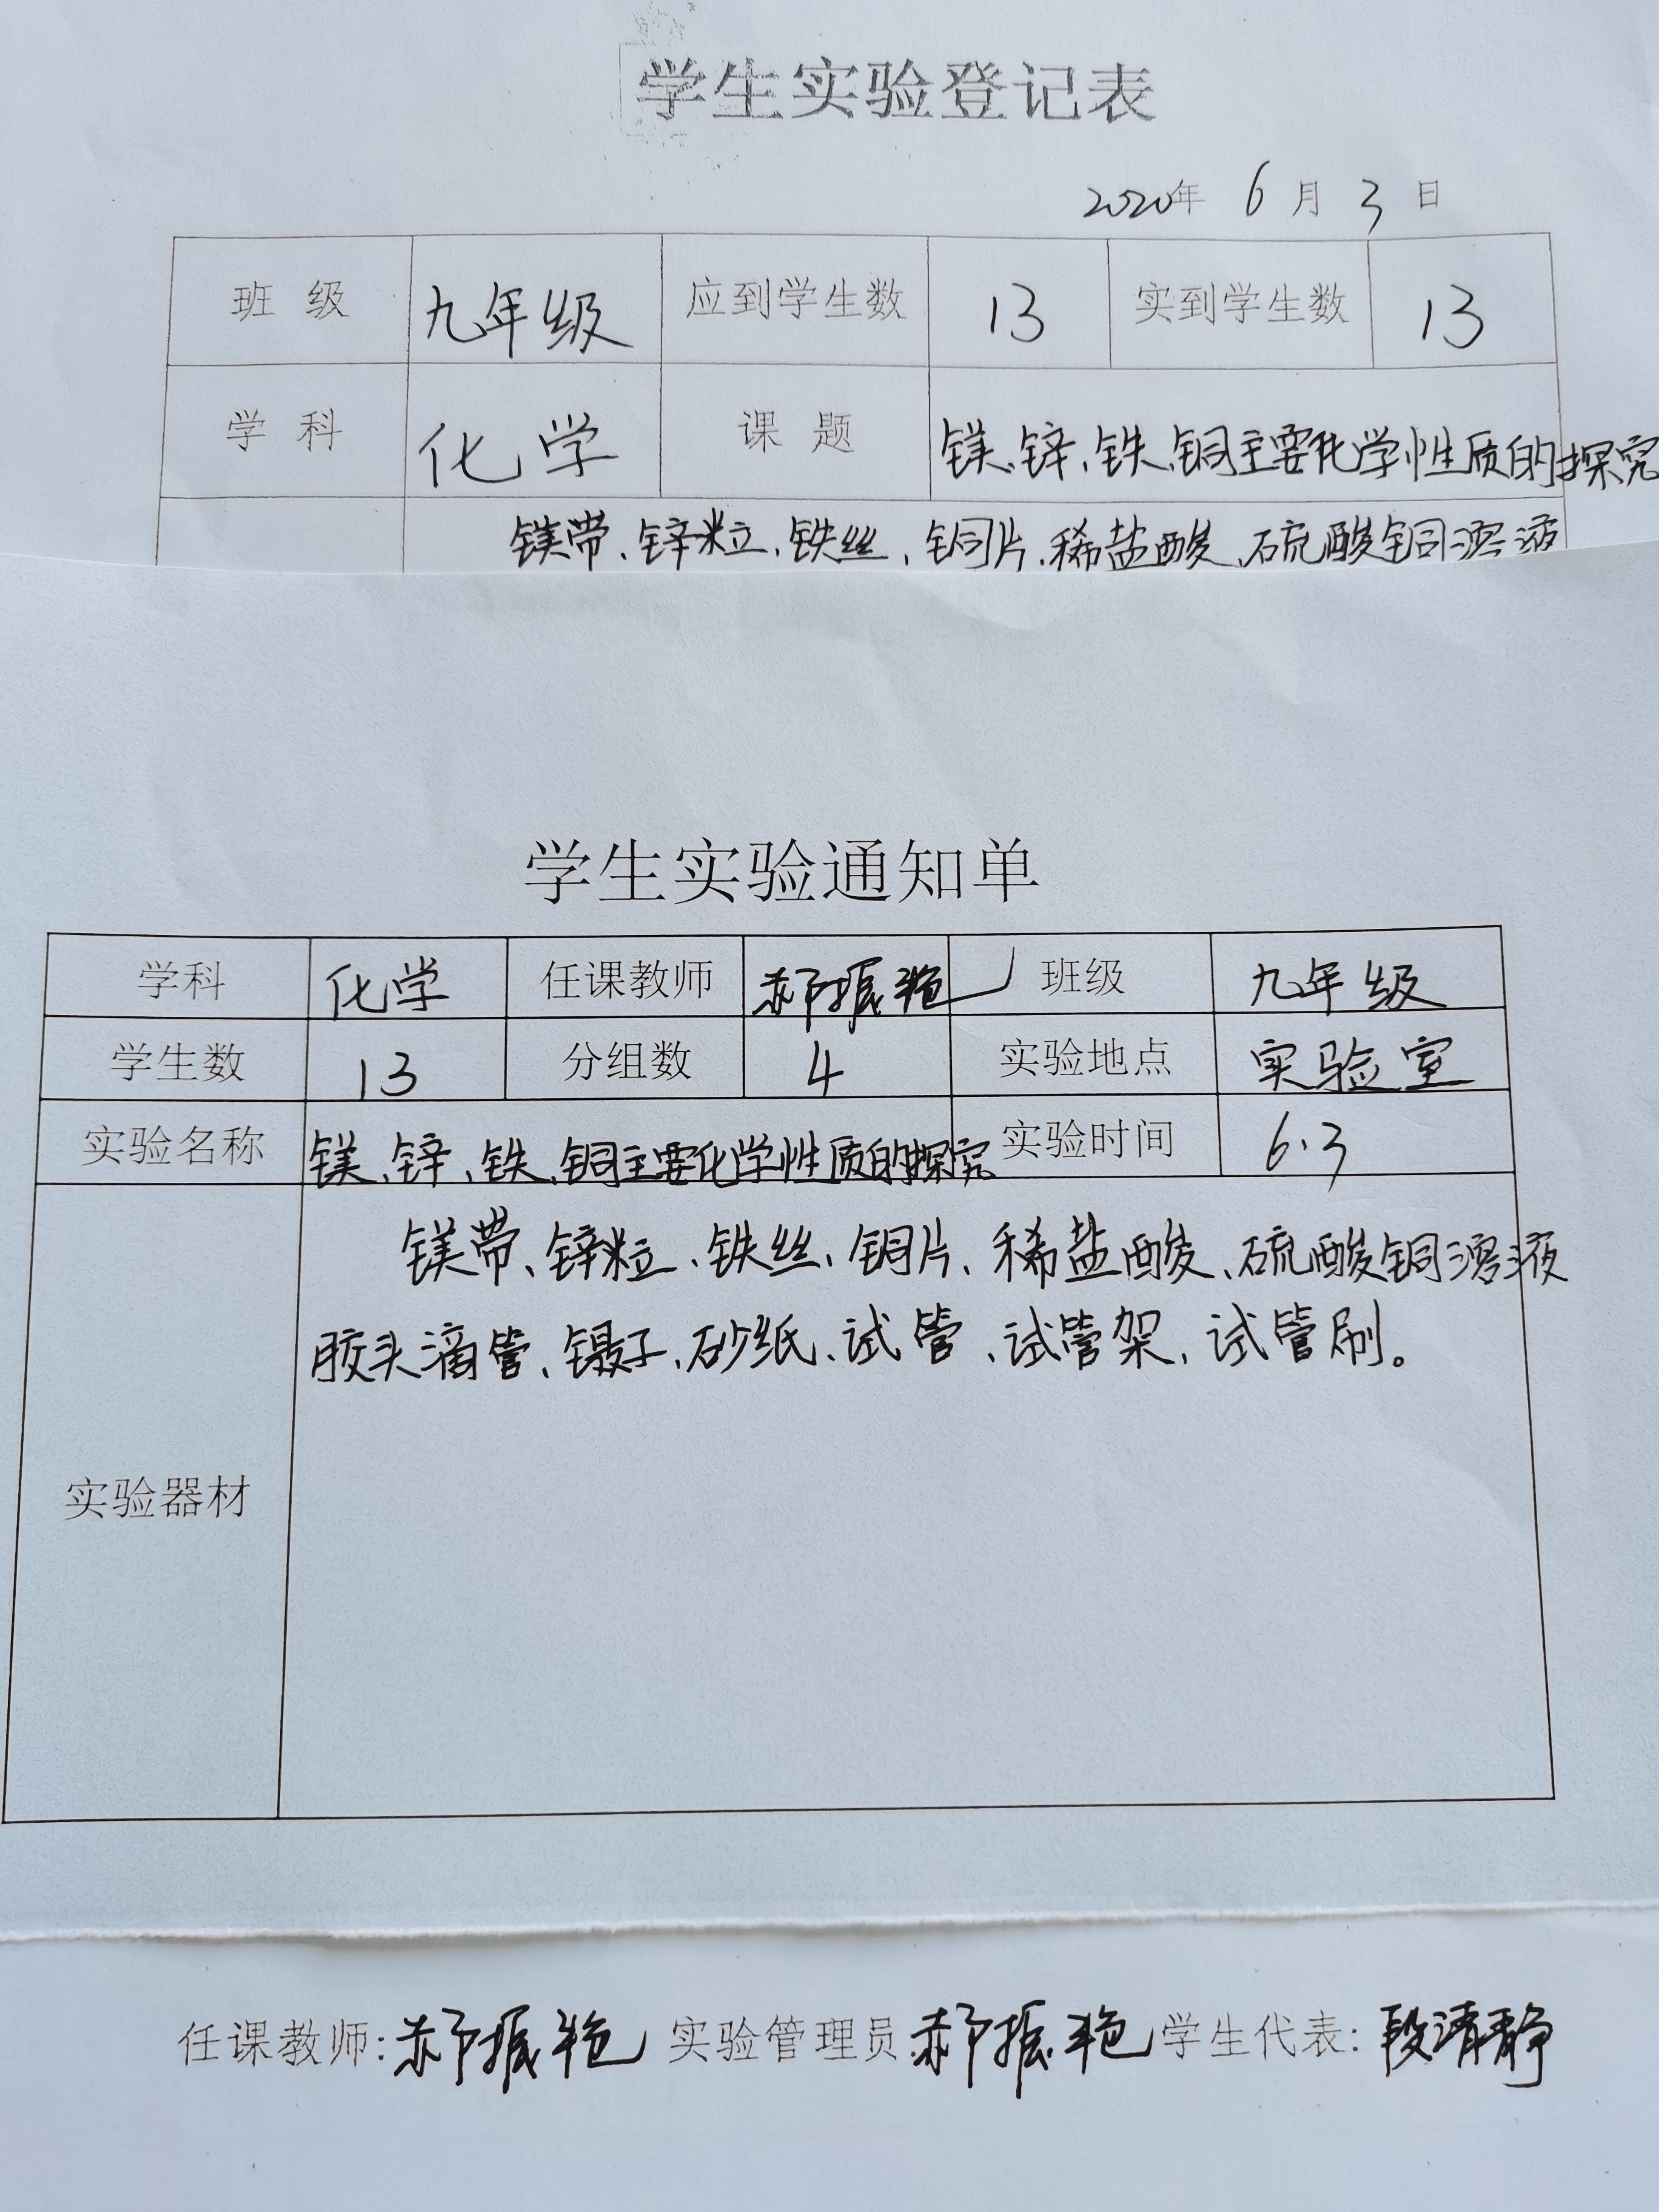 学生实验登记表
2020年 6 月 3 日
班 级 九年级 应到学生数 13 实到学生数 13
学 科 化学 课 题 镁、锌、铁、铜主要化学性质的探究
镁带、锌粒、铁丝、铜片、稀盐酸、硫酸铜溶液
学生实验通知单
学科 化学 任课教师 郝振艳 班级 九年级
学生数 13 分组数 4 实验地点 实验室
实验名称 镁、锌、铁、铜主要化学性质的探究 实验时间 6.3
镁带、锌粒、铁丝、铜片、稀盐酸、硫酸铜溶液
胶头滴管、镊子、砂纸、试管、试管架、试管刷。
实验器材
任课教师:郝振艳 实验管理员:郝振艳 学生代表:段清静